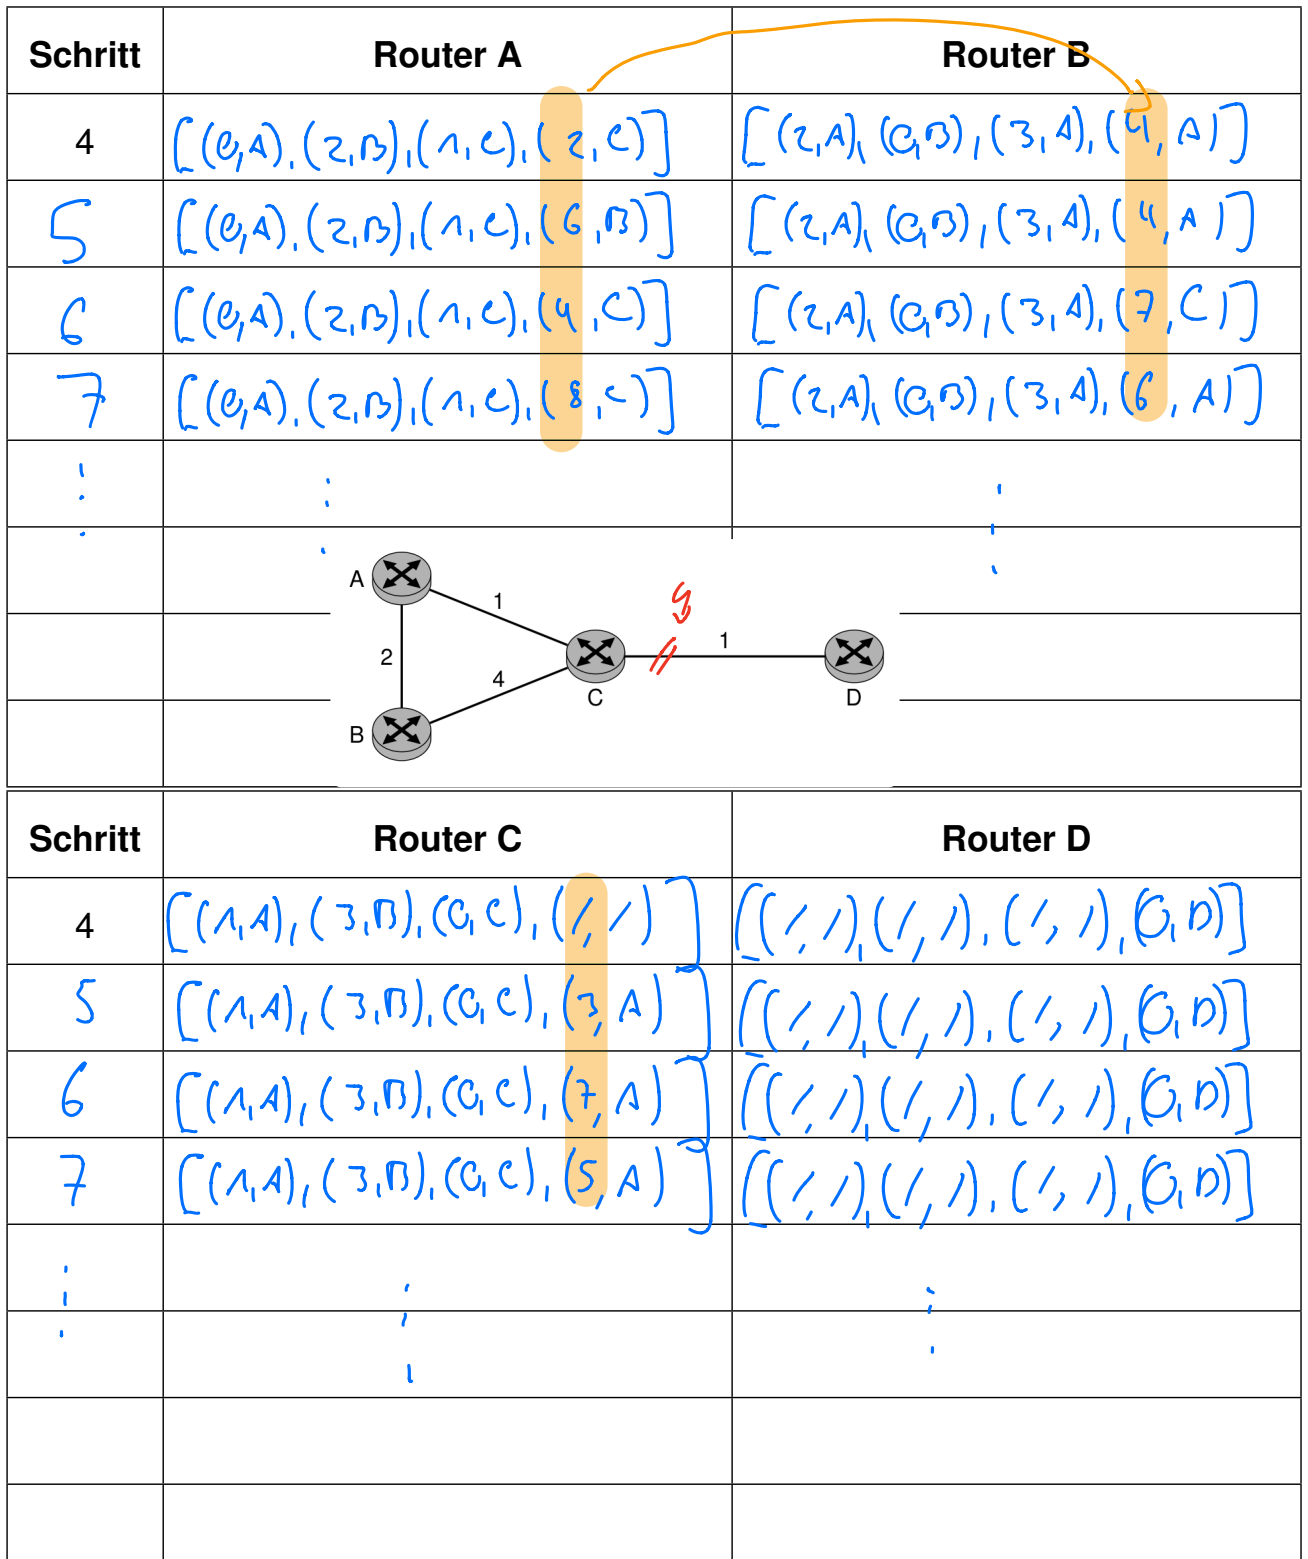 Schritt Router A Router B
4 [(0,A),(2,B),(1,C),(2,C)] [(2,A),(0,B),(3,A),(4,A)]
5 [(0,A),(2,B),(1,C),(6,B)] [(2,A),(0,B),(3,A),(4,A)]
6 [(0,A),(2,B),(1,C),(4,C)] [(2,A),(0,B),(3,A),(7,C)]
7 [(0,A),(2,B),(1,C),(8,C)] [(2,A),(0,B),(3,A),(6,A)]
A
1
2
1
4
C
D
B
Schritt Router C Router D
4 [(1,A),(3,B),(0,C),(/,/)] [(/,/),(/,/),(/,/),(0,D)]
5 [(1,A),(3,B),(0,C),(3,A)] [(/,/),(/,/),(/,/),(0,D)]
6 [(1,A),(3,B),(0,C),(7,A)] [(/,/),(/,/),(/,/),(0,D)]
7 [(1,A),(3,B),(0,C),(5,A)] [(/,/),(/,/),(/,/),(0,D)]